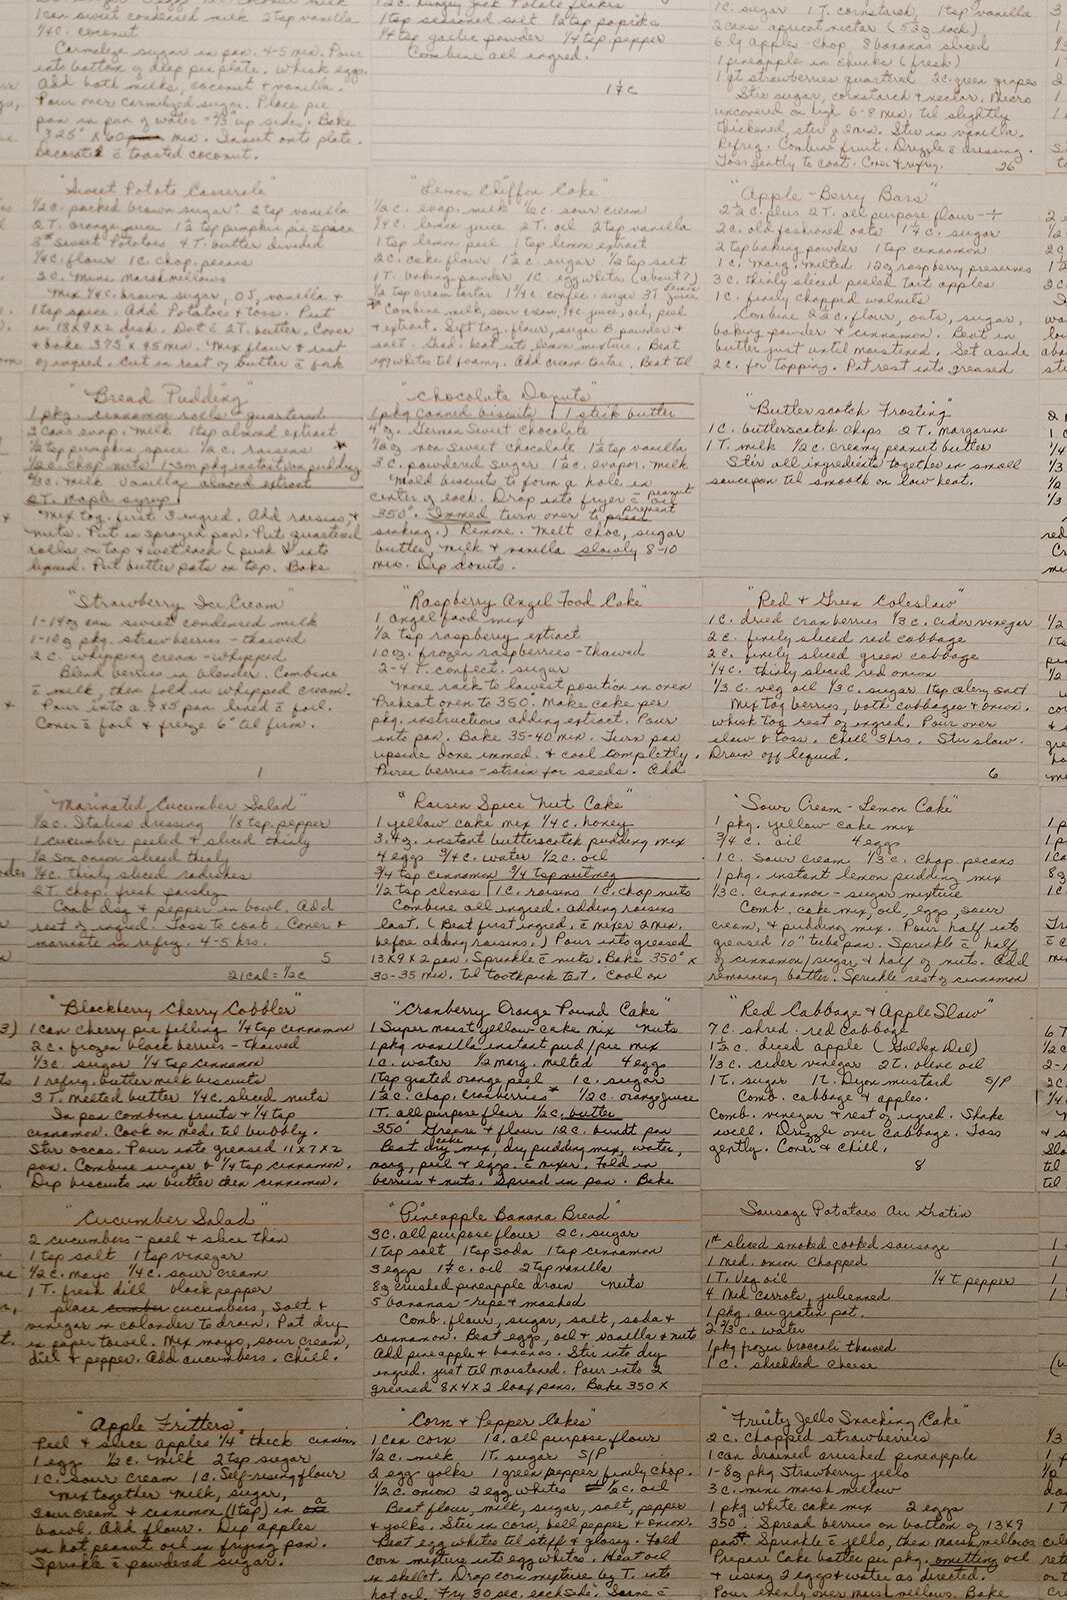 1 can sweet condensed milk 2 tsp vanilla
1/4 c. coconut
Carmelize sugar in pan. 4-5 min. Pour
into bottom of deep pie plate. Whisk eggs.
Add both milks, coconut & vanilla.
Pour over carmelized sugar. Place pie
pan in pan of water = 2/3" up sides. Bake
325° x 60 min. Invert onto plate.
Decorate c̄ toasted coconut.
2 c. hungry jack Potato flakes
1 tsp seasoned salt 1/2 tsp paprika
1/4 tsp garlic powder 1/4 tsp pepper
Combine all ingred.
1 c. sugar 1 T. cornstarch 1 tsp vanilla
2 cans apricot nectar (5 1/2 oz. each)
6 lg apples - chop 8 bananas sliced
1 pineapple in chunks (fresh)
1 qt strawberries quartered 2 c. green grapes
Stir sugar, cornstarch & nectar. Micro
uncovered on high 6-8 min. til slightly
thickened, stir q 2 min. Stir in vanilla.
Refrig. Combine fruit. Drizzle c̄ dressing.
Toss gently to coat. Cover & refrig. 26
"Sweet Potato Casserole"
1/2 c. packed brown sugar 2 tsp vanilla
2 T. orange juice 1 1/2 tsp pumpkin pie spice
3# Sweet Potatoes 4 T. butter divided
1/4 c. flour 1 c. chop. pecans
2 c. mini marshmellows
Mix 1/4 c. brown sugar, OJ, vanilla &
1 tsp spice. Add Potatoes & toss. Put
in 13x9x2 dish. Dot c̄ 2T. butter. Cover
& bake 375 x 45 min. Mix flour & rest
of ingred. Cut in rest of butter c̄ fork
"Lemon Chiffon Cake"
1/2 c. evap. milk 1/2 c. sour cream
1/4 c. lemon juice 2 T. oil 2 tsp vanilla
1 tsp lemon peel 1 tsp lemon extract
2 c. cake flour 1 1/2 c. sugar 1/2 tsp. salt
1 T. baking powder 1 c. egg whites (about 7)
1/2 tsp cream tartar 1 3/4 c. confec. sugar 3 T. lemon juice
Combine milk, sour cream, 1/4 c. juice, oil, peel
& extract. Sift tog. flour, sugar B powder &
salt. Grad. beat into lemon mixture. Beat
egg whites til foamy. Add cream tartar. Beat til
"Apple-Berry Bars"
2 1/2 c. plus 2 T. all purpose flour
2 c. old fashioned oats 1 1/4 c. sugar
2 tsp baking powder 1 tsp cinnamon
1 c. marg. melted 12 oz raspberry preserves
3 c. thinly sliced peeled tart apples
1 c. finely chopped walnuts
Combine 2 1/2 c. flour, oats, sugar,
baking powder & cinnamon. Beat in
butter just until moistened. Set aside
2 c. for topping. Pat rest into greased
"Bread Pudding"
1 pkg. cinnamon rolls - quartered
2 cans evap. milk 1 tsp almond extract
1/2 tsp pumpkin spice 1/2 c. raisins
1/2 c. chop nuts 1-sm pkg instant van pudding
1/3 c. milk vanilla almond extract
2 T. maple syrup
Mix tog. first 3 ingred. Add raisins, &
nuts. Put in sprayed pan. Put quartered
rolls on top & wet each (push ↓ into
liquid. Put butter pats on top. Bake
"Chocolate Donuts"
1 pkg canned biscuits 1 stick butter
4 oz. German Sweet chocolate
1/2 oz non sweet chocolate 1 1/2 tsp vanilla
3 c. powdered sugar 1 1/2 c. evapor. milk
Mold biscuits to form a hole in
center of each. Drop into fryer c̄ peanut oil
350°. Immed turn over to prevent
sinking.) Remove. Melt choc, sugar
butter, milk & vanilla slowly 8-10
min. Dip donuts.
"Butterscotch Frosting"
1 c. butterscotch chips 2 T. margarine
1 T. milk 1/2 c. creamy peanut butter
Stir all ingredients together in small
saucepan til smooth on low heat.
"Strawberry Ice Cream"
1-14 oz can sweet condensed milk
1-10 oz pkg. strawberries - thawed
2 c. whipping cream - whipped
Blend berries in blender. Combine
c̄ milk, then fold in whipped cream.
Pour into a 9x5 pan lined c̄ foil.
Cover c̄ foil & freeze 6° til firm.
1
"Raspberry Angel Food Cake"
1 angel food mix
1/2 tsp raspberry extract
10 oz. frozen raspberries - thawed
2-4 T. confect. sugar
Move rack to lowest position in oven
Preheat oven to 350. Make cake per
pkg. instructions adding extract. Pour
into pan. Bake 35-40 min. Turn pan
upside done immed. & cool completly.
Puree berries - strain for seeds. Add
"Red & Green Coleslaw"
1 c. dried cranberries 1/3 c. cider vinegar
2 c. finely sliced red cabbage
2 c. finely sliced green cabbage
1/4 c. thinly sliced red onion
1/3 c. veg oil 1/3 c. sugar 1 tsp. celery salt
Mix tog berries, both cabbages & onion.
Whisk tog rest of ingred. Pour over
slaw & toss. Chill 3 hrs. Stir slaw.
Drain off liquid.
6
"Marinated Cucumber Salad"
1/2 c. Italian dressing 1/8 tsp. pepper
1 cucumber peeled & sliced thinly
1/2 sm onion sliced thinly
1/4 c. thinly sliced radishes
2 T. chop. fresh parsley
Comb dsg & pepper in bowl. Add
rest of ingred. Toss to coat. Cover &
marinate in refrig. 4-5 hrs.
5
21 cal = 1/2 c
"Raisin Spice Nut Cake"
1 yellow cake mix 1/4 c. honey
3.4 oz. instant butterscotch pudding mix
4 eggs 3/4 c. water 1/2 c. oil
3/4 tsp cinnamon 3/4 tsp nutmeg
1/2 tsp cloves 1 c. raisins 1 c. chop nuts
Combine all ingred. adding raisins
last. (Beat first ingred. c̄ mixer 2 min.
before adding raisins.) Pour into greased
13x9x2 pan. Sprinkle c̄ nuts. Bake 350° x
30-35 min. til toothpick test. Cool on
"Sour Cream-Lemon Cake"
1 pkg. yellow cake mix
3/4 c. oil 4 eggs
1 c. sour cream 1/3 c. chop. pecans
1 pkg. instant lemon pudding mix
1/3 c. cinnamon-sugar mixture
Comb. cake mix, oil, eggs, sour
cream, & pudding mix. Pour half into
greased 10" tube pan. Sprinkle c̄ half
of cinnamon/sugar & half of nuts. Add
remaining batter. Sprinkle rest of cinnamon
"Blackberry Cherry Cobbler"
1 can cherry pie filling 1/4 tsp cinnamon
2 c. frozen black berries - thawed
1/3 c. sugar 1/4 tsp cinnamon
1 refrig. butter milk biscuits
3 T. melted butter 1/4 c. sliced nuts
In pan combine fruits & 1/4 tsp
cinnamon. Cook on med. til bubbly.
Stir occas. Pour into greased 11x7x2
pan. Combine sugar & 1/4 tsp cinnamon.
Dip biscuits in butter then cinnamon.
"Cranberry Orange Pound Cake"
1 Super moist yellow cake mix nuts
1 pkg vanilla instant pud/pie mix
1 c. water 1/2 marg. melted 4 egg
1 tsp grated orange peel 1 c. sugar
1 1/2 c. chop. cranberries 1/2 c. orange juice
1 T. all purpose flour 1/2 c. butter
350° Grease & flour 12 c. bundt pan
Beat dry cake mix, dry pudding mix, water,
marg, peel & eggs c̄ mixer. Fold in
berries & nuts. Spread in pan. Bake
Red Cabbage & Apple Slaw"
7 c. shred. red cabbage
1 1/2 c. diced apple (Golden Del)
1/3 c. cider vinegar 2 T. olive oil
1 T. sugar 1 t. Dijon mustard S/P
Comb. cabbage & apples.
Comb. vinegar & rest of ingred. Shake
well. Drizzle over cabbage. Toss
gently. Cover & chill.
8
"Cucumber Salad"
2 cucumbers - peel & slice thin
1 tsp salt 1 tsp vinegar
1/2 c. mayo 1/4 c. sour cream
1 T. fresh dill black pepper
place cucumbers, salt &
vinegar in colander to drain. Pat dry
in paper towel. Mix mayo, sour cream,
dill & pepper. Add cucumbers. Chill.
"Pineapple Banana Bread"
3 c. all purpose flour 2 c. sugar
1 tsp salt 1 tsp Soda 1 tsp cinnamon
3 eggs 1 1/4 c. oil 2 tsp vanilla
8 oz crushed pineapple drain nuts
5 bananas - ripe & mashed
Comb. flour, sugar, salt, soda &
cinnamon. Beat eggs, oil & vanilla & nuts
Add pineapple & bananas. Stir into dry
ingred. just til moistened. Pour into 2
greased 8x4x2 loaf pans. Bake 350 x
Sausage Potatoes Au Gratin
1# sliced smoked cooked sausage
1 Med. onion chopped
1 T. Veg oil 1/4 t pepper
4 Med carrots, julienned
1 pkg. au gratin pot.
2 1/3 c. water
1 pkg frozen broccoli thawed
1 c. shredded cheese
"Apple Fritters"
Peel & slice apples 1/4" thick cinnamon
1 egg 1/2 c. milk 2 tsp sugar
1 c. sour cream 1 c. Self-rising flour
Mix together milk, sugar,
sour cream & cinnamon (1 tsp) in a
bowl. Add flour. Dip apples
in hot peanut oil in frying pan.
Sprinkle c̄ powdered sugar.
"Corn & Pepper Cakes"
1 can corn 1 c. all purpose flour
1/2 c. milk 1 T. sugar S/P
2 egg yolks 1 green pepper finely chop.
1/2 c. onion 2 egg whites 1/2 c. oil
Beat flour, milk, sugar, salt, pepper
& yolks. Stir in corn, bell pepper & onion.
Beat egg whites til stiff & glossy. Fold
corn mixture into egg whites. Heat oil
in skillet. Drop corn mixture by T. into
hot oil. Fry 30 sec. each side. Serve c̄
"Fruity Jello Snacking Cake"
2 c. chopped strawberries
1 can drained crushed pineapple
1-8 oz pkg Strawberry jello
3 c. mini marsh mellow
1 pkg white cake mix 2 eggs
350° Spread berries on bottom of 13x9
pan. Sprinkle c̄ jello, then marshmellows
Prepare Cake batter per pkg. omitting oil
& using 2 eggs & water as directed.
Pour evenly over marshmellows. Bake